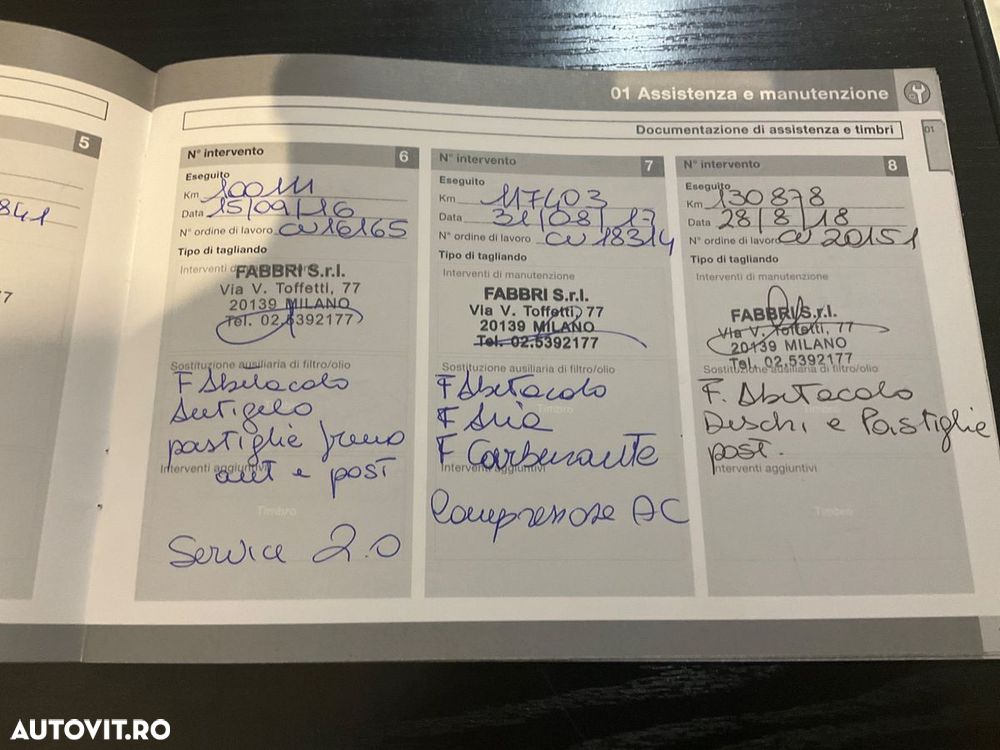 01 Assistenza e manutenzione
Documentazione di assistenza e timbri
01
5
841
7
N° intervento 6
Eseguito
Km 100111
Data 15/09/16
N° ordine di lavoro CU 16165
Tipo di tagliando
Interventi
FABBRI S.r.l.
Via V. Toffetti, 77
20139 MILANO
Tel. 02.5392177
Sostituzione ausiliaria di filtro/olio
F Abitacolo
Antigelo
pastiglie freno
ant e post
Interventi aggiuntivi
Timbro
Service 2.0
N° intervento 7
Eseguito
Km 117403
Data 31/08/17
N° ordine di lavoro CU 18314
Tipo di tagliando
Interventi di manutenzione
FABBRI S.r.l.
Via V. Toffetti, 77
20139 MILANO
Tel. 02.5392177
Sostituzione ausiliaria di filtro/olio
F Abitacolo
F Aria
F Carburante
Interventi aggiuntivi
Compressore AC
N° intervento 8
Eseguito
Km 130878
Data 28/8/18
N° ordine di lavoro CU 20151
Tipo di tagliando
Interventi di manutenzione
FABBRI S.r.l.
Via V. Toffetti, 77
20139 MILANO
Tel. 02.5392177
Sostituzione ausiliaria di filtro/olio
F. Abitacolo
Timbro
Dischi e Pastiglie
post.
Interventi aggiuntivi
Timbro
AUTOVIT.RO